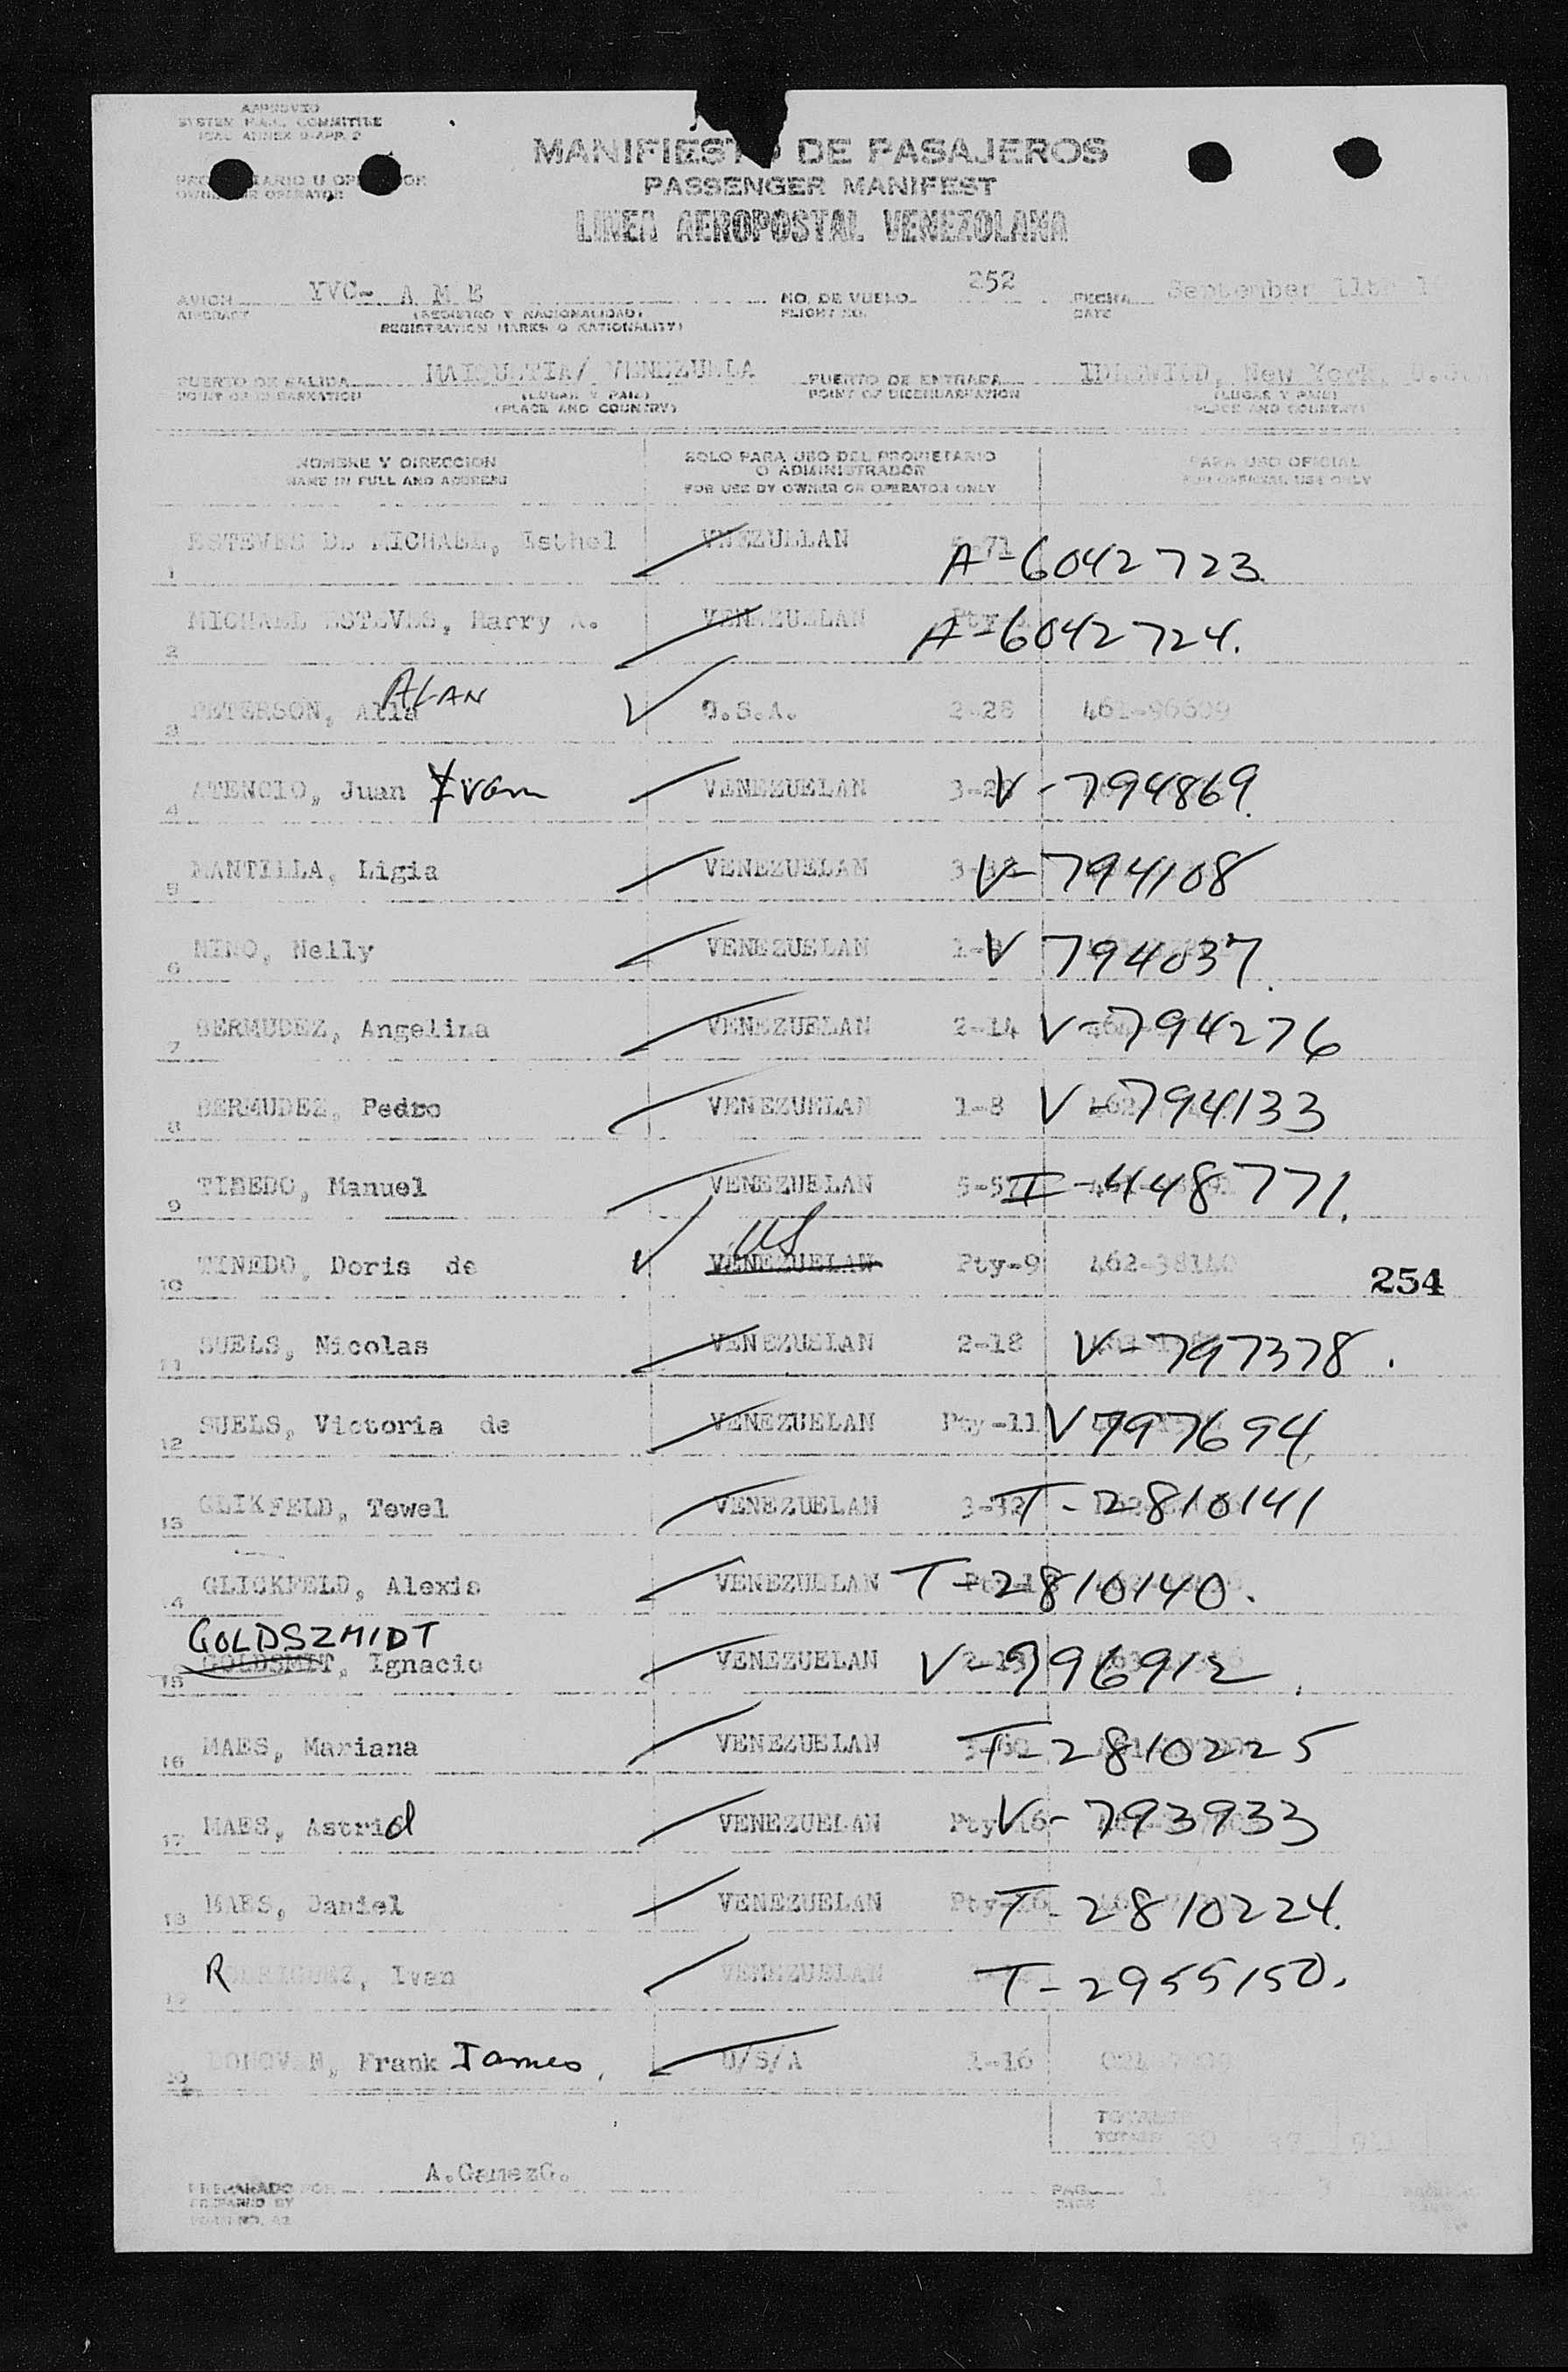 APPROVED
SYSTEM F.A.L. COMMITTEE
ICAO ANNEX 9-APP. 2
OPERATOR
MANIFIESTO DE PASAJEROS
PASSENGER MANIFEST
LINEA AEROPOSTAL VENEZOLANA
AVION YVC- A M E NO. DE VUELO 252 FECHA September 11th 1
AIRCRAFT (REGISTRO Y NACIONALIDAD) FLIGHT NO. DATE
REGISTRATION MARKS & NATIONALITY)
PUERTO DE SALIDA MAIQUETIA/ VENEZUELA PUERTO DE ENTRADA IDLEWILD, New York, U.S.A
POINT OF EMBARKATION (LUGAR Y PAIS) POINT OF DISEMBARKATION (LUGAR Y PAIS)
(PLACE AND COUNTRY) (PLACE AND COUNTRY)
NOMBRE Y DIRECCION SOLO PARA USO DEL PROPIETARIO PARA USO OFICIAL
O ADMINISTRADOR
NAME IN FULL AND ADDRESS FOR USE BY OWNER OR OPERATOR ONLY FOR OFFICIAL USE ONLY
1 ESTEVES DE MICHAEL, Esthel VNEZULLAN A-6042723
2 MICHAEL ESTEVES, Harry A. VENEZUELAN A-6042724.
ALAN
3 PETERSON, Alla U.S.A. 2-28 461-96609
4 ATENCIO, Juan Ivan VENEZUELAN V-794869
5 MANTILLA, Ligia VENEZUELAN V-794108
6 NINO, Nelly VENEZUELAN V 794037
7 BERMUDEZ, Angelina VENEZUELAN 2-14 V-794276
8 BERMUDEZ, Pedro VENEZUELAN 1-8 V-794133
9 TINEDO, Manuel VENEZUELAN 5-57 I-448771.
US
10 TINEDO, Doris de VENEZUELAN Pty-9 462-38140
254
11 SUELS, Nicolas VENEZUELAN 2-18 V-797378.
12 SUELS, Victoria de VENEZUELAN Pty-11 V797694
13 GLIKFELD, Tewel VENEZUELAN 3-32 T-2810141
14 GLICKFELD, Alexis VENEZUELAN T-2810140.
GOLDSZMIDT
15 GOLDSMIT, Ignacio VENEZUELAN V-996912
16 MAES, Mariana VENEZUELAN T-2810225
17 MAES, Astrid VENEZUELAN Pty-16 V-793933
18 MAES, Daniel VENEZUELAN Pty-16 T-2810224.
19 RODRIGUEZ, Ivan VENEZUELAN T-2955150.
20 DONOVAN, Frank James, U/S/A 1-16
TOTALES
TOTALS 20
PREPARADO POR A.GamezG. PAG. 1 3
PREPARED BY PAGE
FORM NO. A2